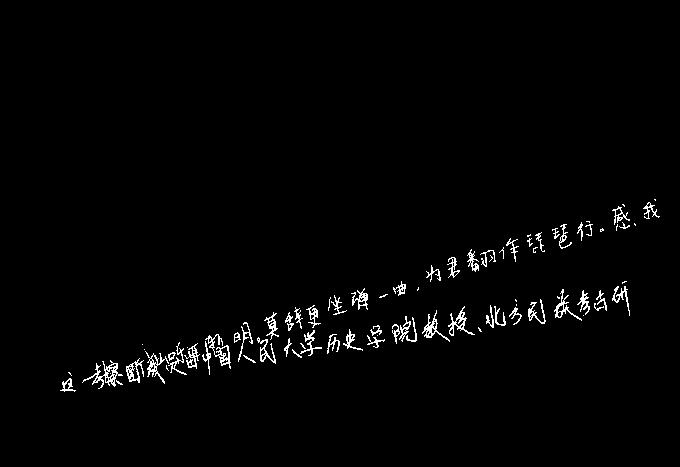 莫辞更坐弹一曲，为君翻作琵琶行。感我
这一考察人民大学历史学院教授、北方民族考古研